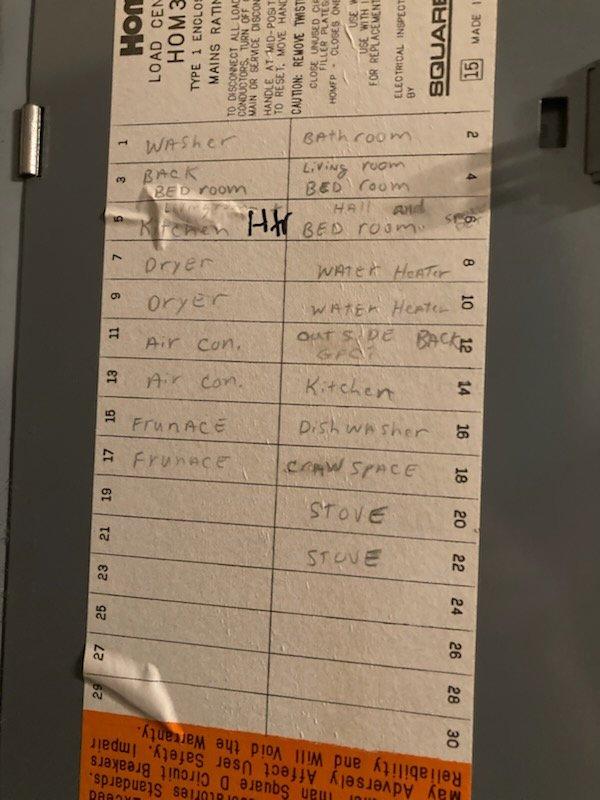 HOM
LOAD CEN
HOM3
TYPE 1 ENCLOS
MAINS RATIN
TO DISCONNECT ALL LOA
CONDUCTORS, TURN OFF
MAIN OR SERVICE DISCON
HANDLE AT MID-POSIT
TO RESET, MOVE HAND
CAUTION: REMOVE TWIST
CLOSE UNUSED
FILLER PLATES
HOMFP CLOSES ONE
USE W
USE WITH
FOR REPLACEMENT
ELECTRICAL INSPECT
BY
SQUARE
15 MADE I
1 WASHer BAthroom 2
3 BACK BED room Living room BED room 4
5 Livingroom Kitchen HH HAll and BED room 6
7 Dryer WATEr HEATEr 8
9 Dryer WATEr HeATEr 10
11 Air con. OUTSIDE BACK GFCI 12
13 Air con. Kitchen 14
15 FrunACE DiSHWASHer 16
17 FrunACE CRAWSPACE 18
19 STOVE 20
21 STOVE 22
23 24
25 26
27 28
29 30
Reliability and Will Void the Warranty.
May Adversely Affect User Safety, Impair
Than Square D Circuit Breakers
oratories Standards.
Exceed